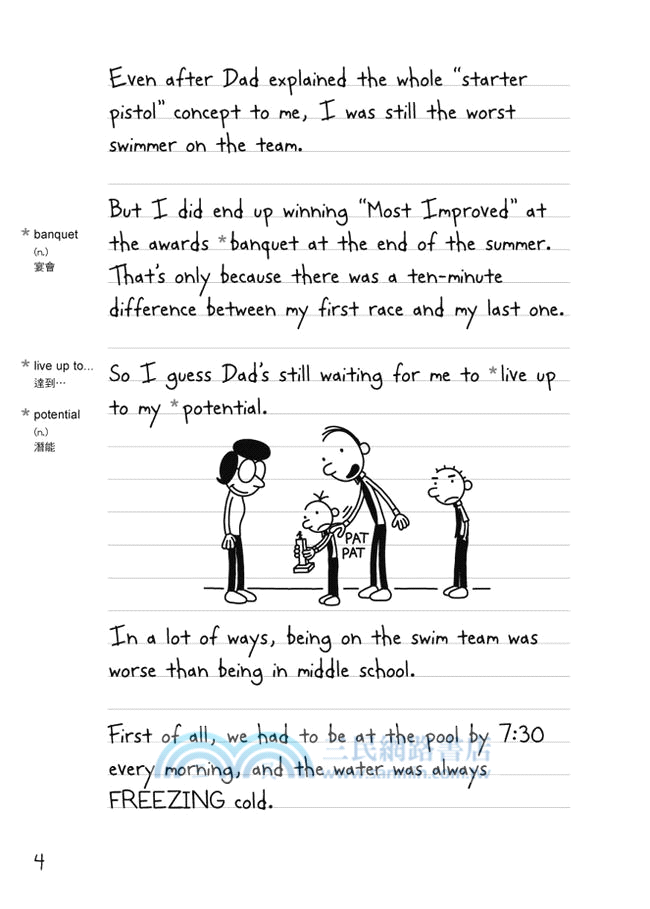 Even after Dad explained the whole “starter
pistol” concept to me, I was still the worst
swimmer on the team.
But I did end up winning “Most Improved” at
* banquet
(n.)
宴會
the awards *banquet at the end of the summer.
That’s only because there was a ten-minute
difference between my first race and my last one.
* live up to...
達到…
So I guess Dad’s still waiting for me to *live up
* potential
(n.)
潛能
to my *potential.
PAT
PAT
In a lot of ways, being on the swim team was
worse than being in middle school.
First of all, we had to be at the pool by 7:30
every morning, and the water was always
FREEZING cold.
三民網路書店
www.sanmin.com.tw
4